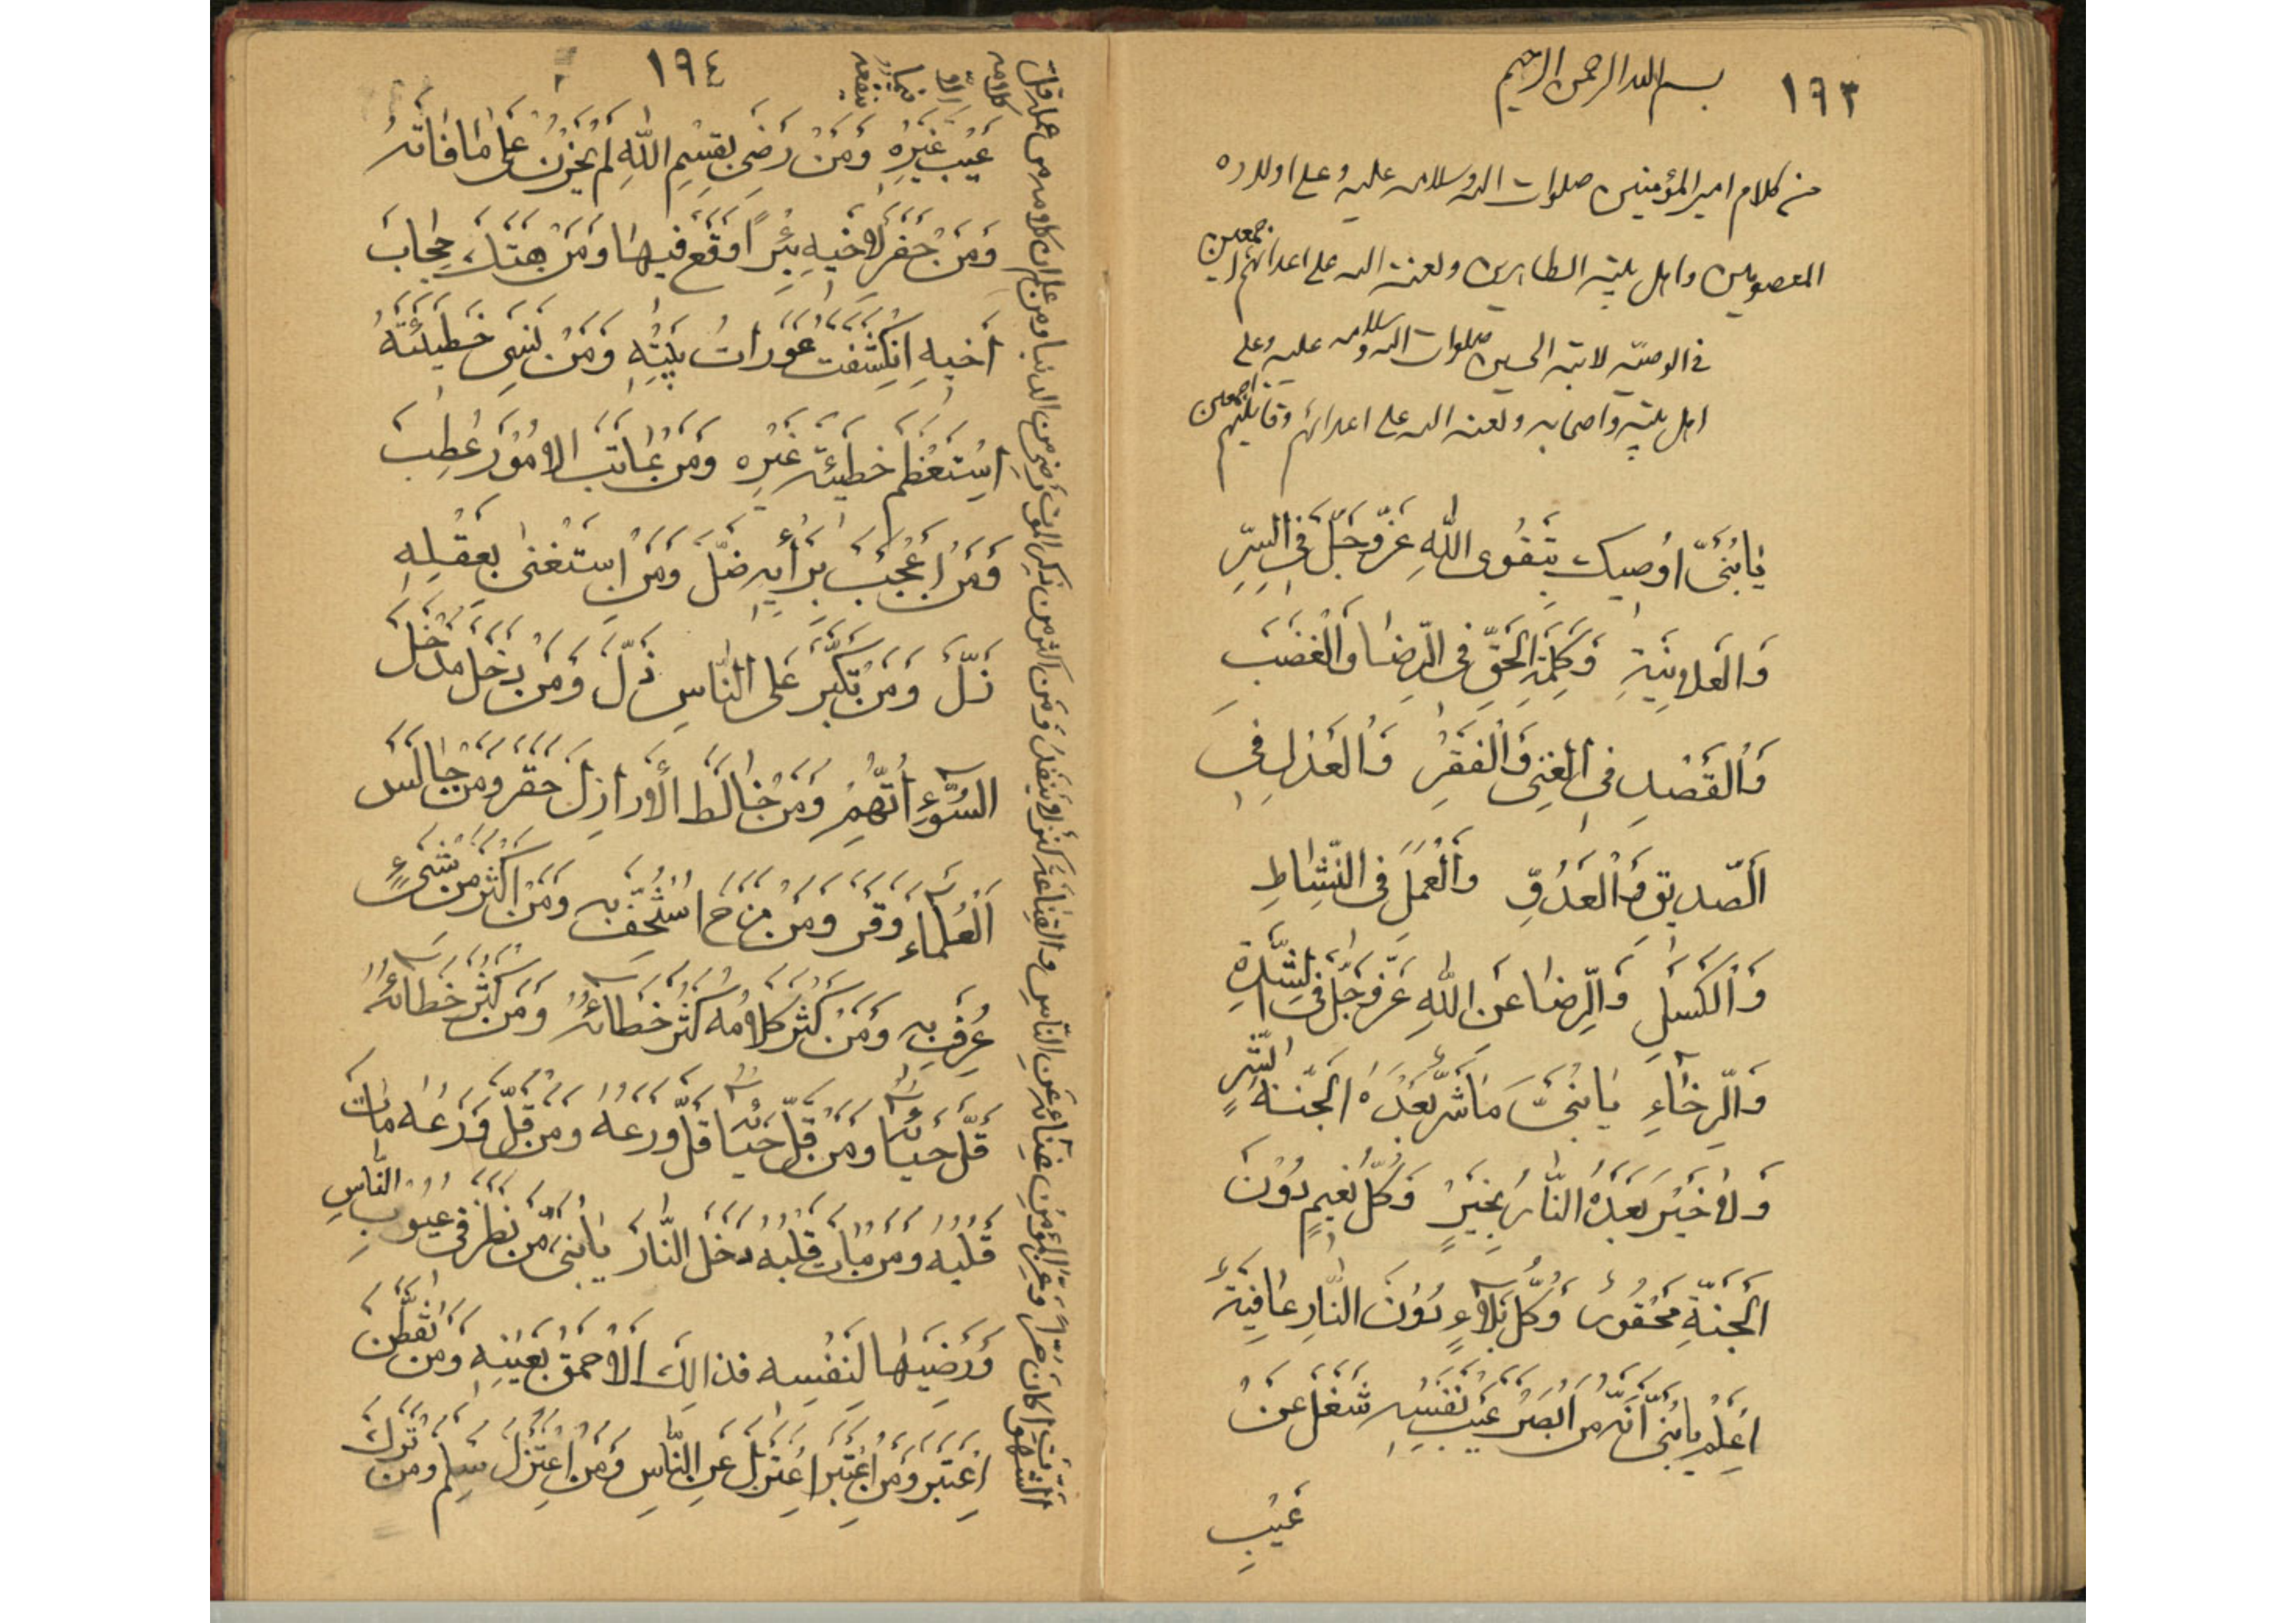 ١٩٣
بسم الله الرحمن الرحيم
من كلام امير المؤمنين صلوات الله وسلامه عليه وعلى اولاده
المعصومين واهل بيته الطاهرين ولعنة الله على اعدائهم اجمعين
في الوصيّة لابنه الحسين صلوات الله وسلامه عليه وعلى
اهل بيته واصحابه ولعنة الله على اعدائهم وقاتليهم اجمعين
يَا بُنَىَّ اُوصيكَ بِتَقْوَى اللهِ عَزَّوَجَلَّ فِى السِّرِّ
وَالْعَلانِيَةِ وَكَلِمَةِ الْحَقِّ فِى الرِّضَا وَالْغَضَبِ
وَالْقَصْدِ فِى الْغِنى وَالْفَقْرِ وَالْعَدْلِ فِى
الصَّديقِ وَالْعَدُوِّ وَالْعَمَلِ فِى النَّشَاطِ
وَالْكَسَلِ وَالرِّضَا عَنِ اللهِ عَزَّوَجَلَّ فِى الشِّدَّةِ
وَالرَّخَاءِ يَا بُنَىَّ مَا شَرٌّ بَعْدَهُ الْجَنَّةُ بِشَرٍّ
وَلا خَيْرَ بَعْدَهُ النَّارُ بِخَيْرٍ وَكُلُّ نَعيمٍ دُوْنَ
الْجَنَّةِ مَحْقُورٌ وَكُلُّ بَلاءٍ دُوْنَ النَّارِ عَافِيَةٌ
اِعْلَمْ يَا بُنَىَّ اَنَّهُ مَنْ اَبْصَرَ عَيْبَ نَفْسِهِ شَغَلَ عَنْ
عَيْبِ
١٩٤
عَيْبِ غَيْرِهِ وَمَنْ رَضِىَ بِقِسْمِ اللهِ لَمْ يَحْزَنْ عَلى مَا فَاتَهُ
وَمَنْ حَفَرَ لاَخيهِ بِئْرًا وَقَعَ فيهَا وَمَنْ هَتَكَ حِجَابَ
اَخيهِ اِنْكَشَفَتْ عَوْرَاتُ بَيْتِهِ وَمَنْ نَسِىَ خَطيئَتَهُ
اِسْتَعْظَمَ خَطيئَةَ غَيْرِهِ وَمَنْ عَاتَبَ الاُمُوْرَ عَطِبَ
وَمَنْ اُعْجِبَ بِرَأيِهِ ضَلَّ وَمَنِ اسْتَغْنى بِعَقْلِهِ
زَلَّ وَمَنْ تَكَبَّرَ عَلَى النَّاسِ ذَلَّ وَمَنْ دَخَلَ مَدْخَلَ
السُّوْءِ اتُّهِمَ وَمَنْ خَالَطَ الْاَرَاذِلَ حَقُرَ وَمَنْ جَالَسَ
الْعُلَمَاءَ وَقُرَ وَمَنْ مَزَحَ اسْتُخِفَّ بِهِ وَمَنْ اَكْثَرَ مِنْ شَىْءٍ
عُرِفَ بِهِ وَمَنْ كَثُرَ كَلامُهُ كَثُرَ خَطَائُهُ وَمَنْ كَثُرَ خَطَائُهُ
قَلَّ حَيَائُهُ وَمَنْ قَلَّ حَيَائُهُ قَلَّ وَرَعُهُ وَمَنْ قَلَّ وَرَعُهُ مَاتَ
قَلْبُهُ وَمَنْ مَاتَ قَلْبُهُ دَخَلَ النَّارَ يَا بُنَىَّ مَنْ نَظَرَ فى عُيُوبِ النَّاسِ
وَرَضِيَهَا لِنَفْسِهِ فَذَالِكَ الاَحْمَقُ بِعَيْنِهِ وَمَنْ تَفَطَّنَ
اِعْتَبَرَ وَمَنِ اعْتَبَرَ اعْتَزَلَ عَنِ النَّاسِ وَمَنِ اعْتَزَلَ سَلِمَ وَمَنْ تَرَكَ
الشَّهَوَاتِ كَانَ حُرًّا وَعِزُّ الْمُؤْمِنِ غِنَائُهُ عَنِ النَّاسِ وَالْقَنَاعَةُ كَنْزٌ لا يَنْفَدُ وَمَنْ اَكْثَرَ مِنْ ذِكْرِ الْمَوْتِ رَضِىَ مِنَ الدنيا ومن علم ان كلامه من عمله قل
كلامه
الا
فيما
ينفعه